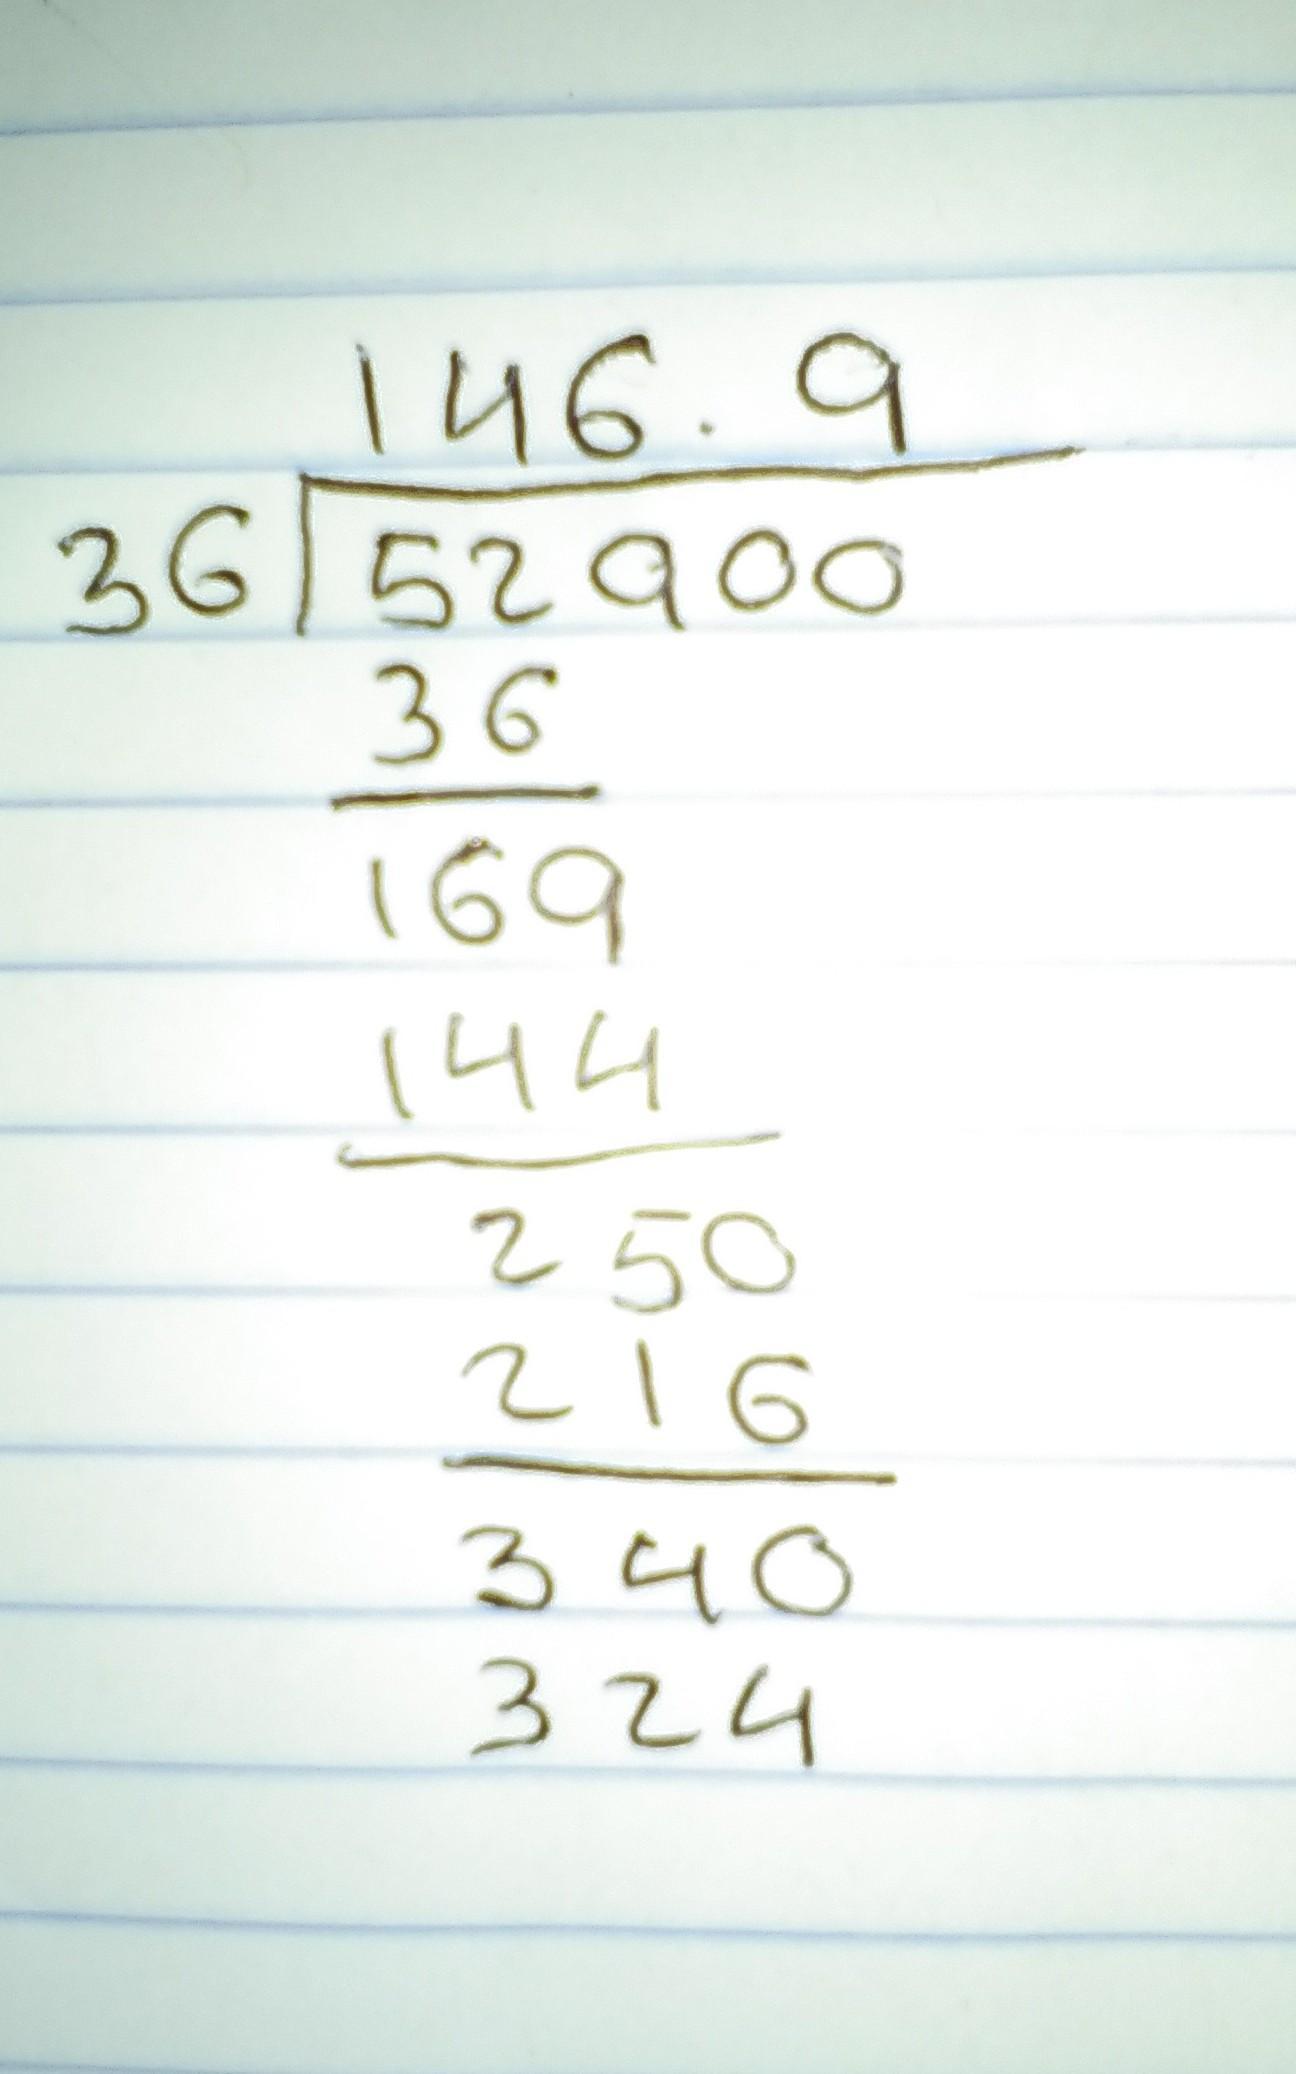 146.9
36 52900
36
169
144
250
216
340
324